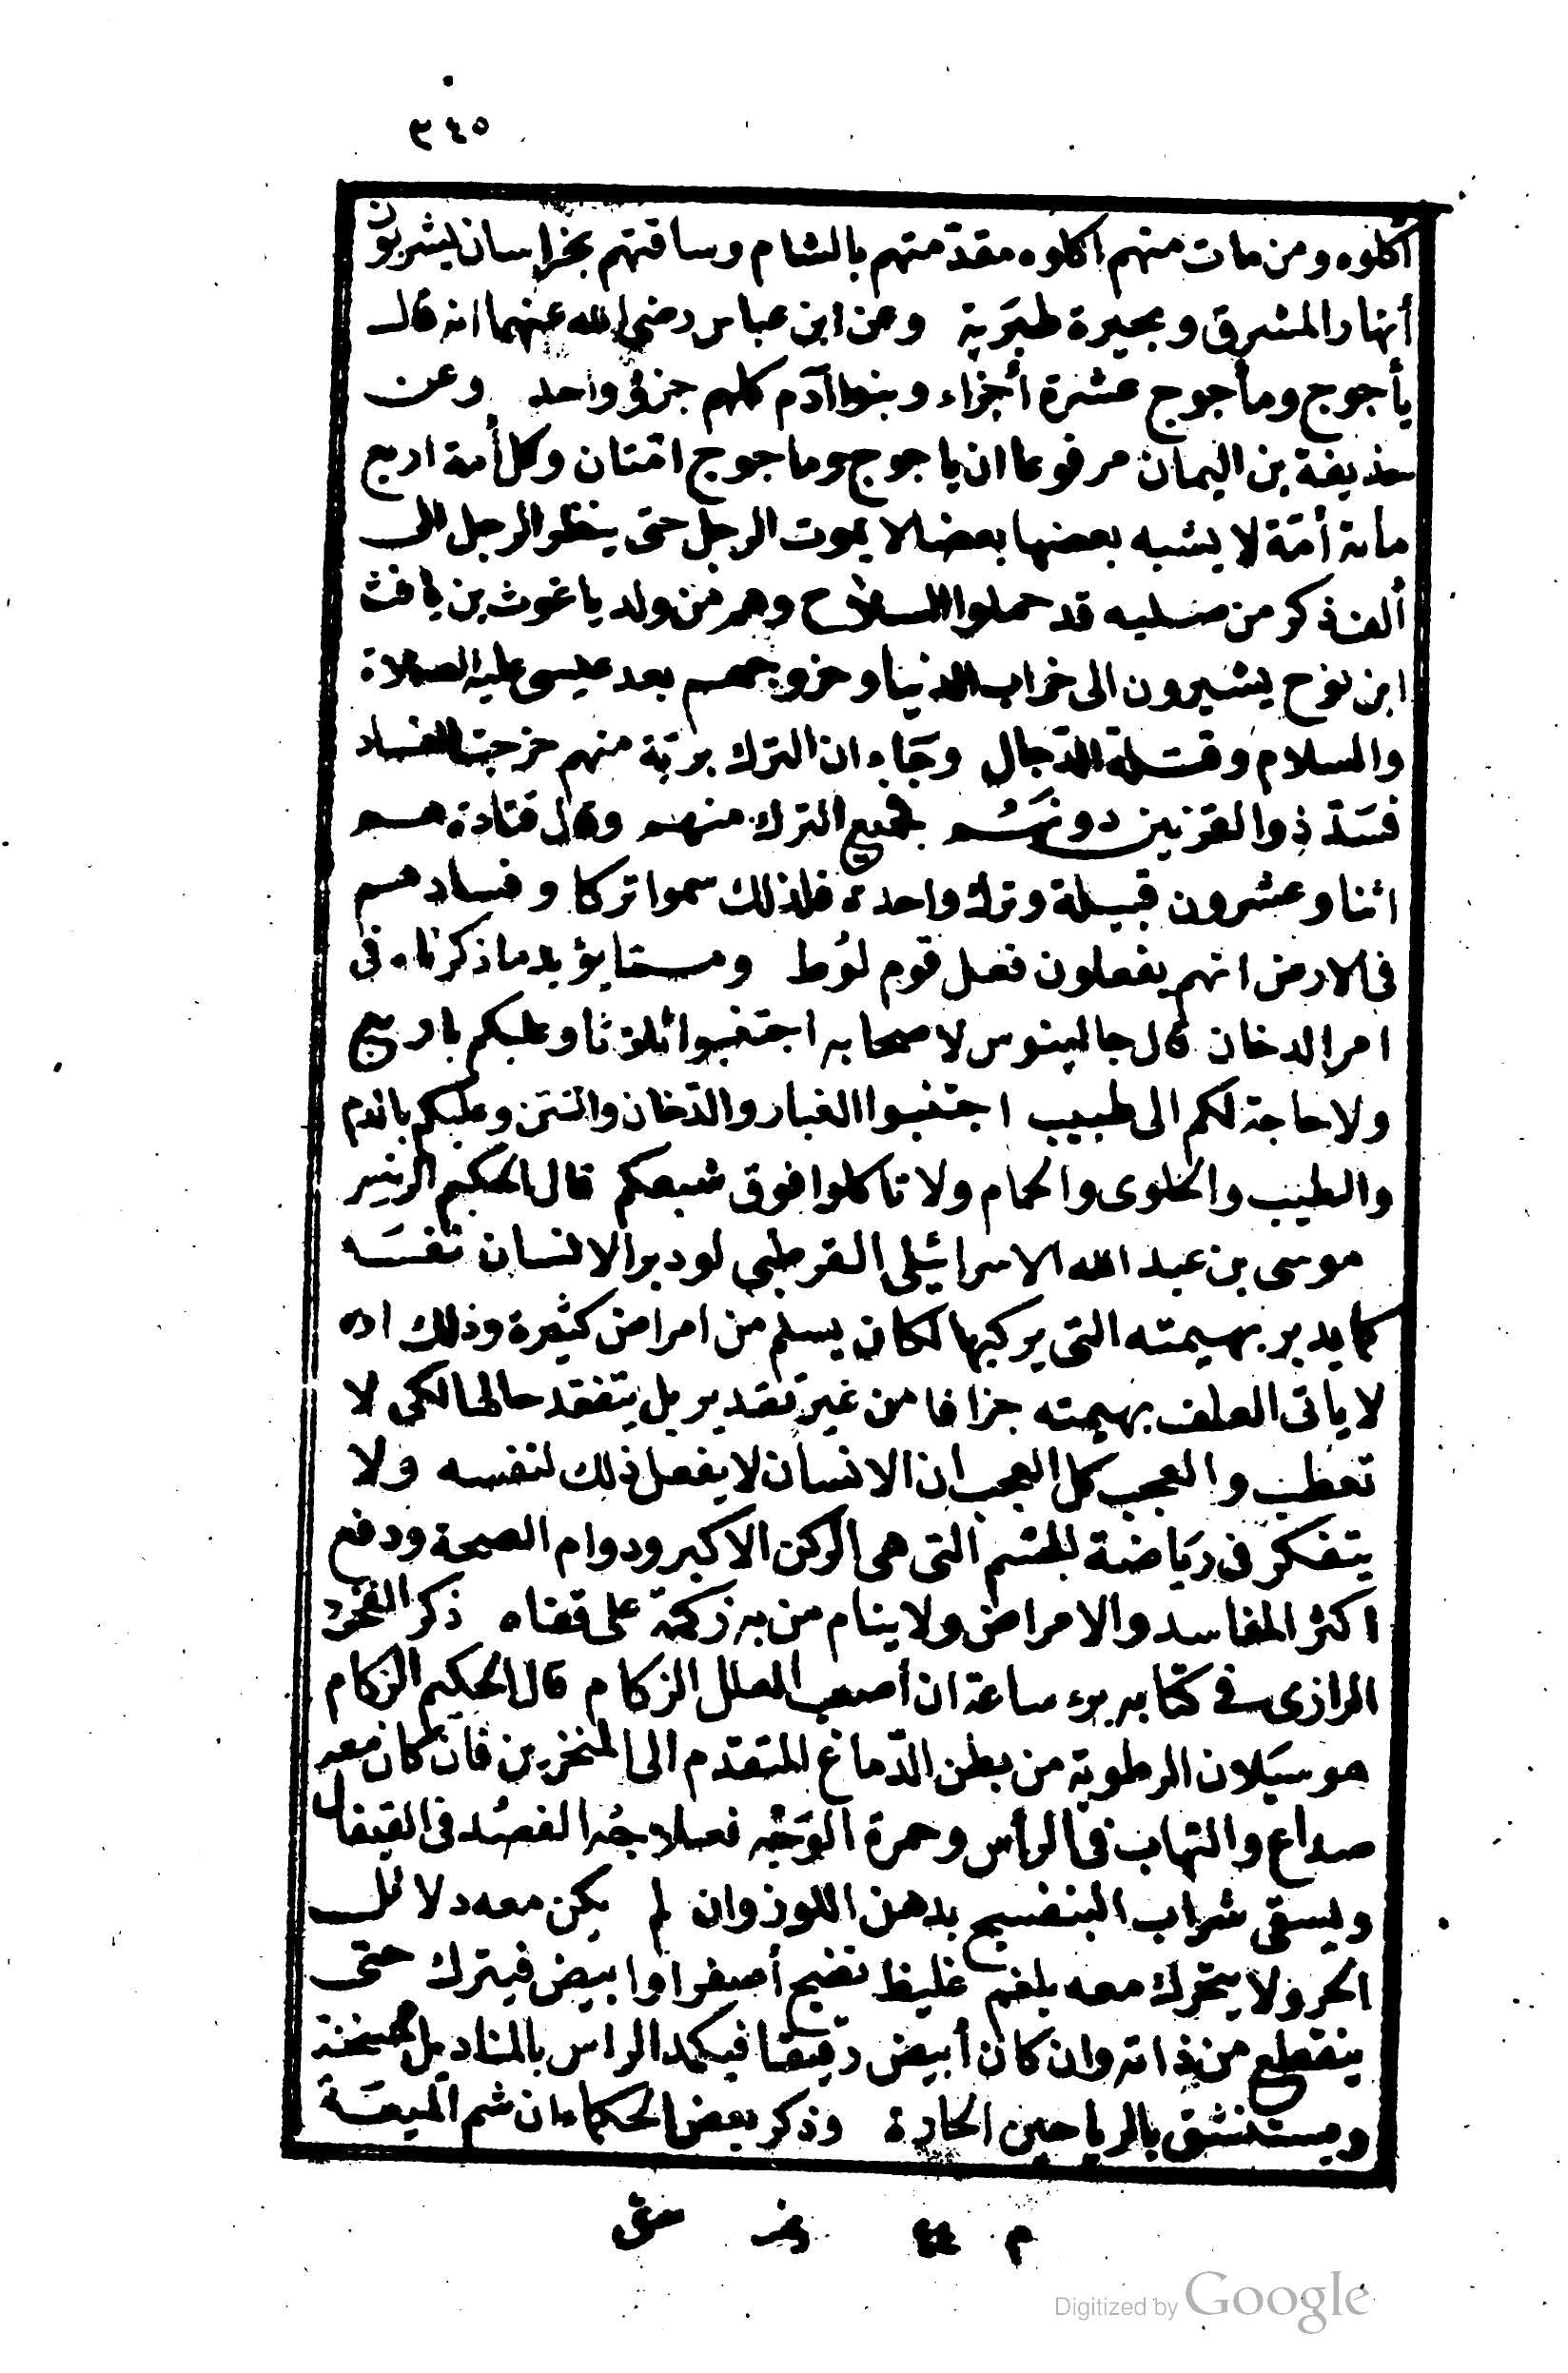 ٣٤٥
اكلوه ومن مات منهم اكلوه مقدّمتهم بالشام وساقتهم بخراسان يشربون
أنهار المشرق وبحيرة طبَريّة وعن ابن عباس رضي الله عنهما انه قال
يأجوج ومأجوج عشرة أجزاء وبنوا آدم كلهم جزؤ واحد وعن
حذيفة بن اليمان مرفوعا ان ياجوج وماجوج امّتان وكل أمة اربع
مائة أمّة لا يشبه بعضها بعضا لا يموت الرجل حتى ينظر الرجل الى
ألف ذكر من صلبه قد حملوا السلاح وهم من ولد ياغوث بن يافث
ابن نوح يشيرون الى خراب الدنيا وخروجهم بعد عيسى عليه الصلاة
والسلام وقتله الدّجال وجَاء ان الترك بريّة منهم خرجت للفساد
فسَدّ ذوا القرنين دونهُم فجميع الترك منهم وقال قتادة هم
اثنا وعشرون قبيلة وترك واحدة فلذلك سموا تركا وفسادهم
فى الارض انهم يفعلون فعل قوم لوُط وممّا يؤيد ما ذكرناه فى
امر الدخان قال جالينوس لاصحابه اجتنبوا ثلاثا وعليكم باربع
ولا حاجة لكم الى طبيب اجتنبوا الغبار والدّخان والنتن وعليكم بالدسم
والطيب والحلوى والحمام ولا تاكلوا فوق شبعكم قال الحكيم الرئيس
موسى بن عبد الله الاسرائيلى القرطبى لو دبر الانسان نفسَه
كما يدبر بهيمته التى يركبها لكان يسلم من امراض كثيرة وذلك انه
لا ياتى العلف بهيمته جزافا من غير تقدير بل يتفقد حالها لكى لا
تعطب والعجب كل العجب ان الانسان لا يفعل ذلك لنفسه ولا
يتفكر فى ريَاضة للجسم التى هى الركن الاكبر ودوام الصحة ودفع
اكثر المفاسد والامراض ولا ينام من به زكمة على قفاه ذكر الفخر
الرازى فى كتابه برء ساعة ان أصعب العلل الزكام قال الحكيم الزكام
هو سيَلان الرطوبة من بطن الدّماغ المتقدم الى المنخرين فان كان معه
صداع والتهاب فى الرأس وحمرة الوَجْه فعلاجُه الفصُد فى القيفال
ويسقى شراب البنفسج بدهن اللوز وان لم يكن معه دلائل
الحر ولا يتحرك معه بلغم غليظ نضيج أصفر او ابيض فيترك حتى
ينقطع من ذاته وان كان أبيض رقيقا فيكمد الراس بالمناديل المسخنة
ويستنشق بالرياحين الحارة وذكر بعض الحكماء ان شم الميعَة
م ٤٤
Digitized by Google